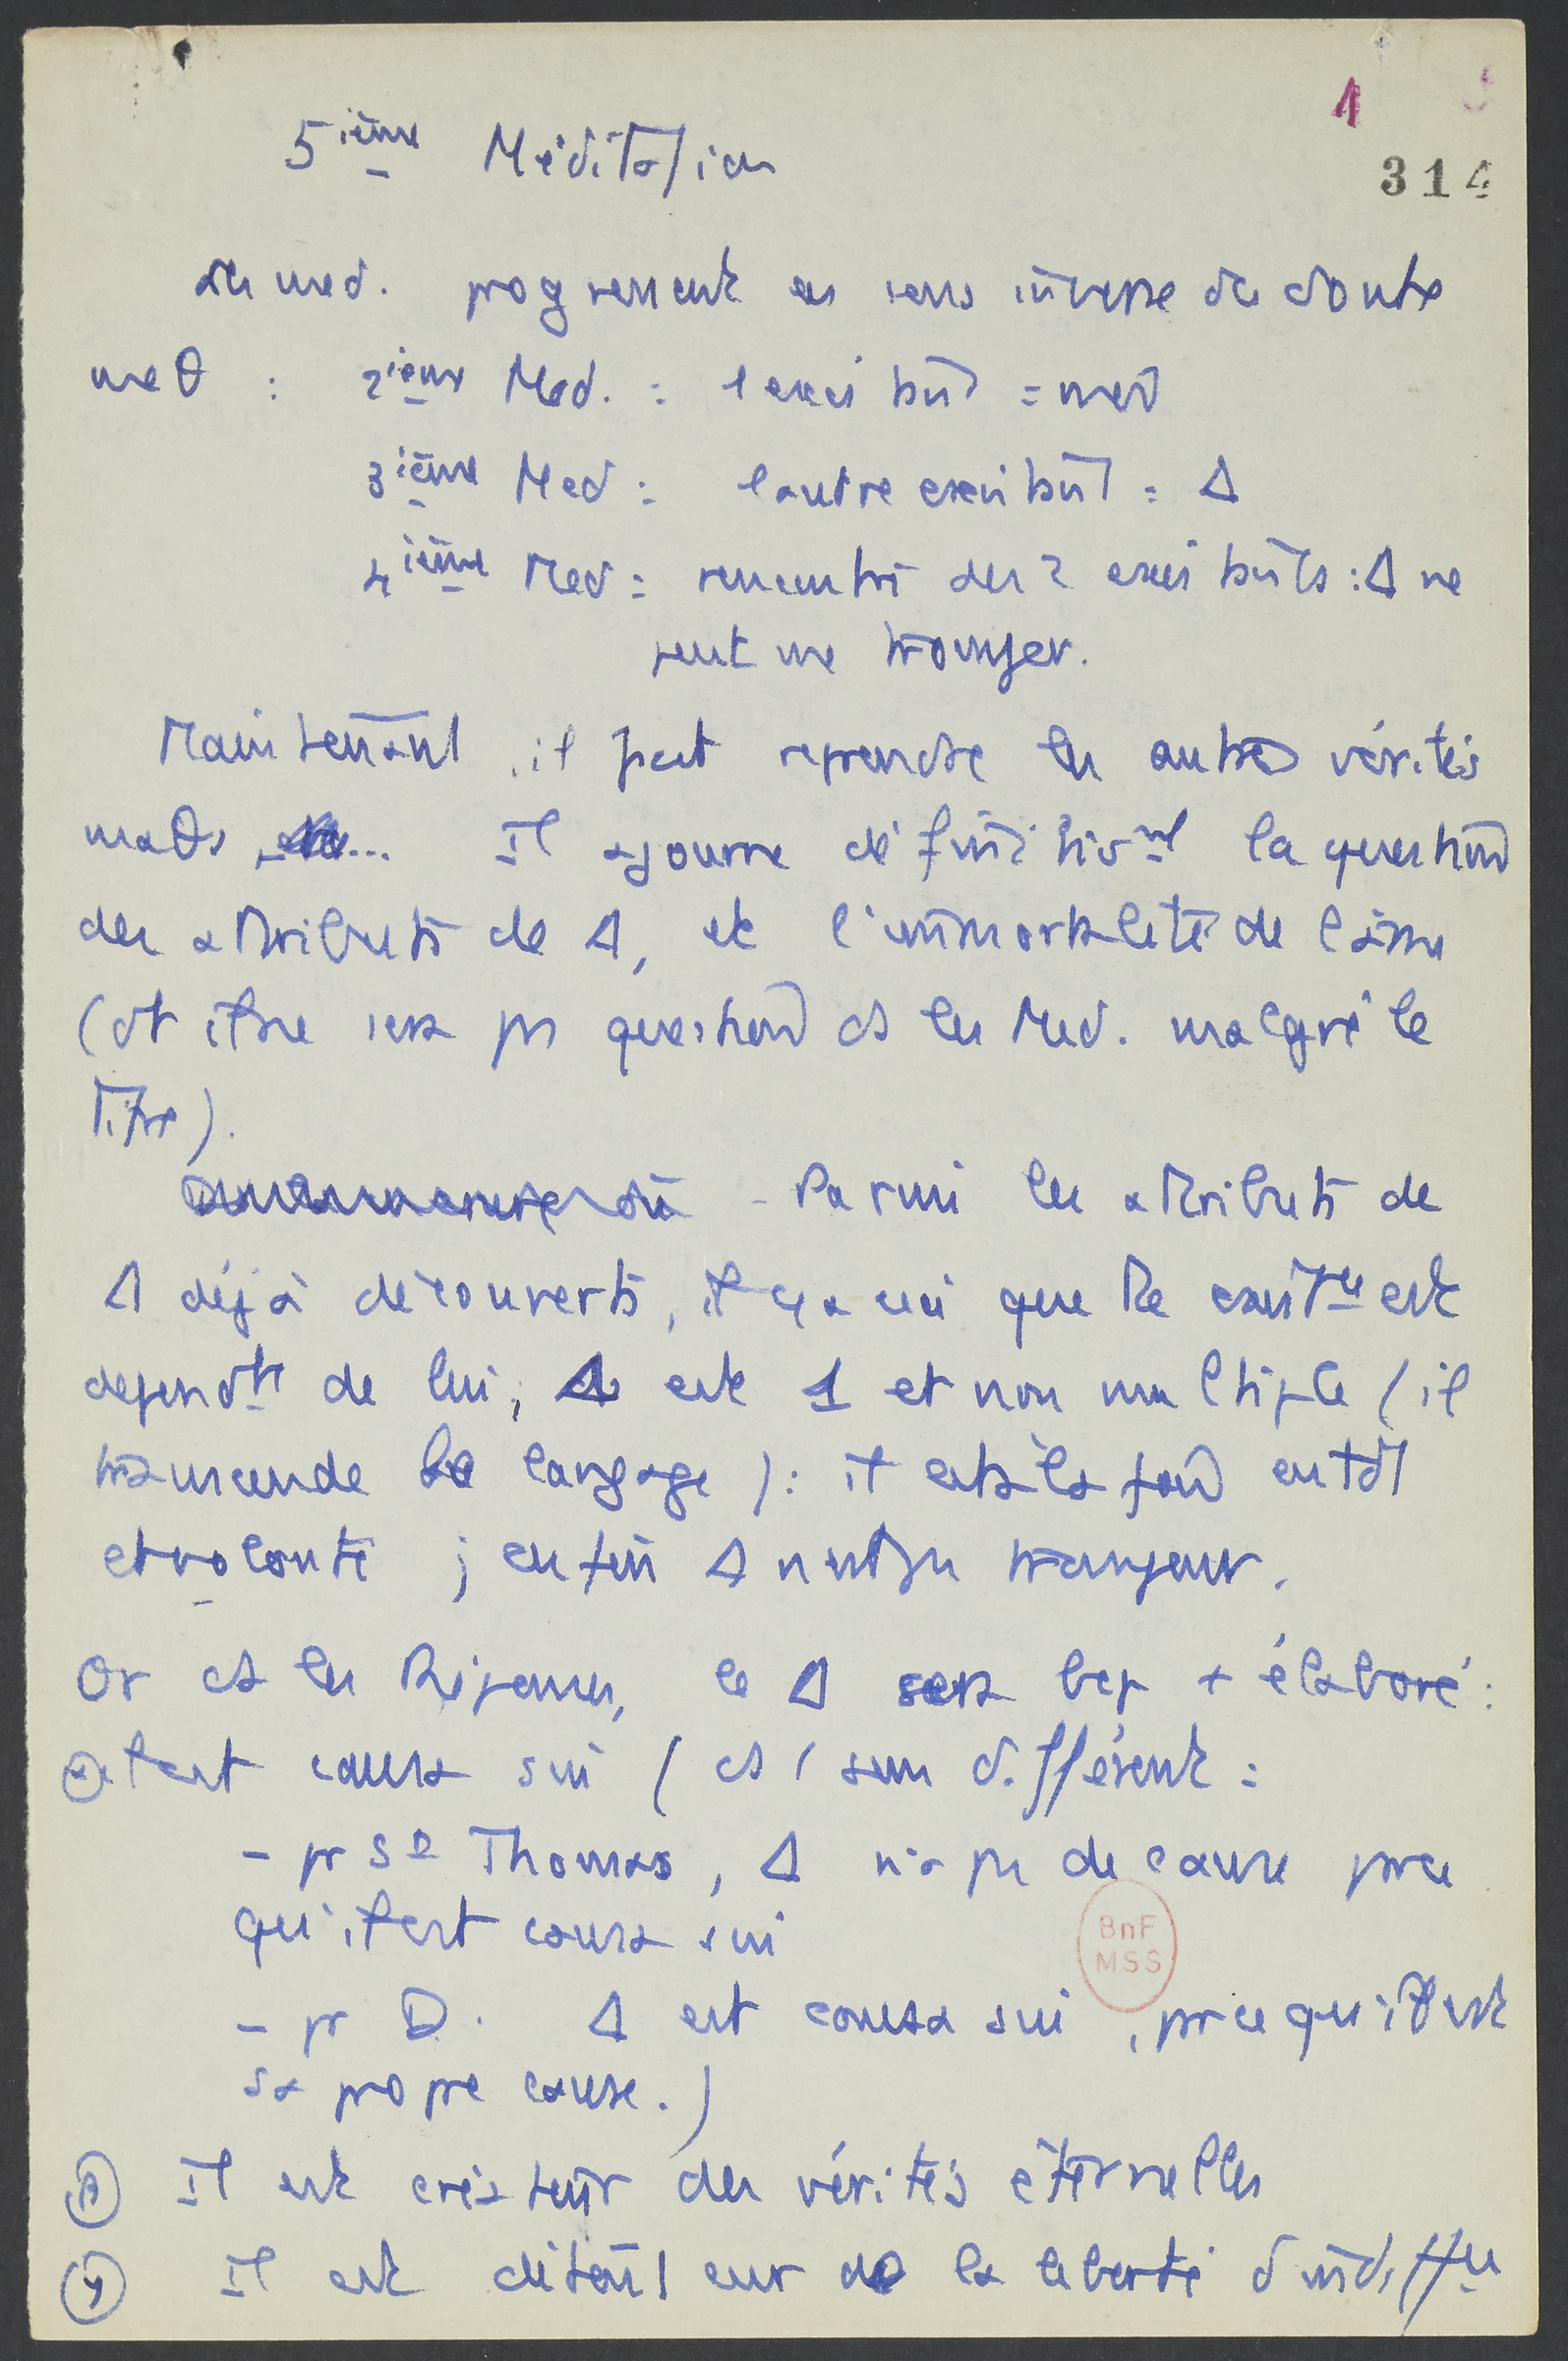 1
314
5ième Méditation
les med. progressent en sens inverse du doute
meθ : 2ième Med. :
3ième Med : l'autre : Δ
4ième Med : rencontre des 2 : Δ ne
peut me tromper.
Maintenant, il faut reprendre les autres vérités
maθs ... Il ajourne définitivmt la question
des attributs de Δ, et l'immortalité de l'âme
(dt il ne sera pas question ds les Med. malgré le
titre).
- Parmi les attributs de
Δ déjà découverts, il y a ceci que tte existce est
dépendte de lui, Δ est 1 et non multiple (il
transcende le langage) : il est à la fois entdt
et volonté ; enfin Δ n'est pas trompeur.
Or ds les Réponses, le Δ sera bcp + élaboré :
α il est causa sui (ds 1 sens différent :
- pr St Thomas, Δ n'a pas de cause prce
qu'il est causa sui
- pr D. Δ est causa sui, prce qu'il est
sa propre cause.)
β Il est créateur des vérités éternelles
γ Il est détenteur de la liberté d'indiffce
BnF
MSS